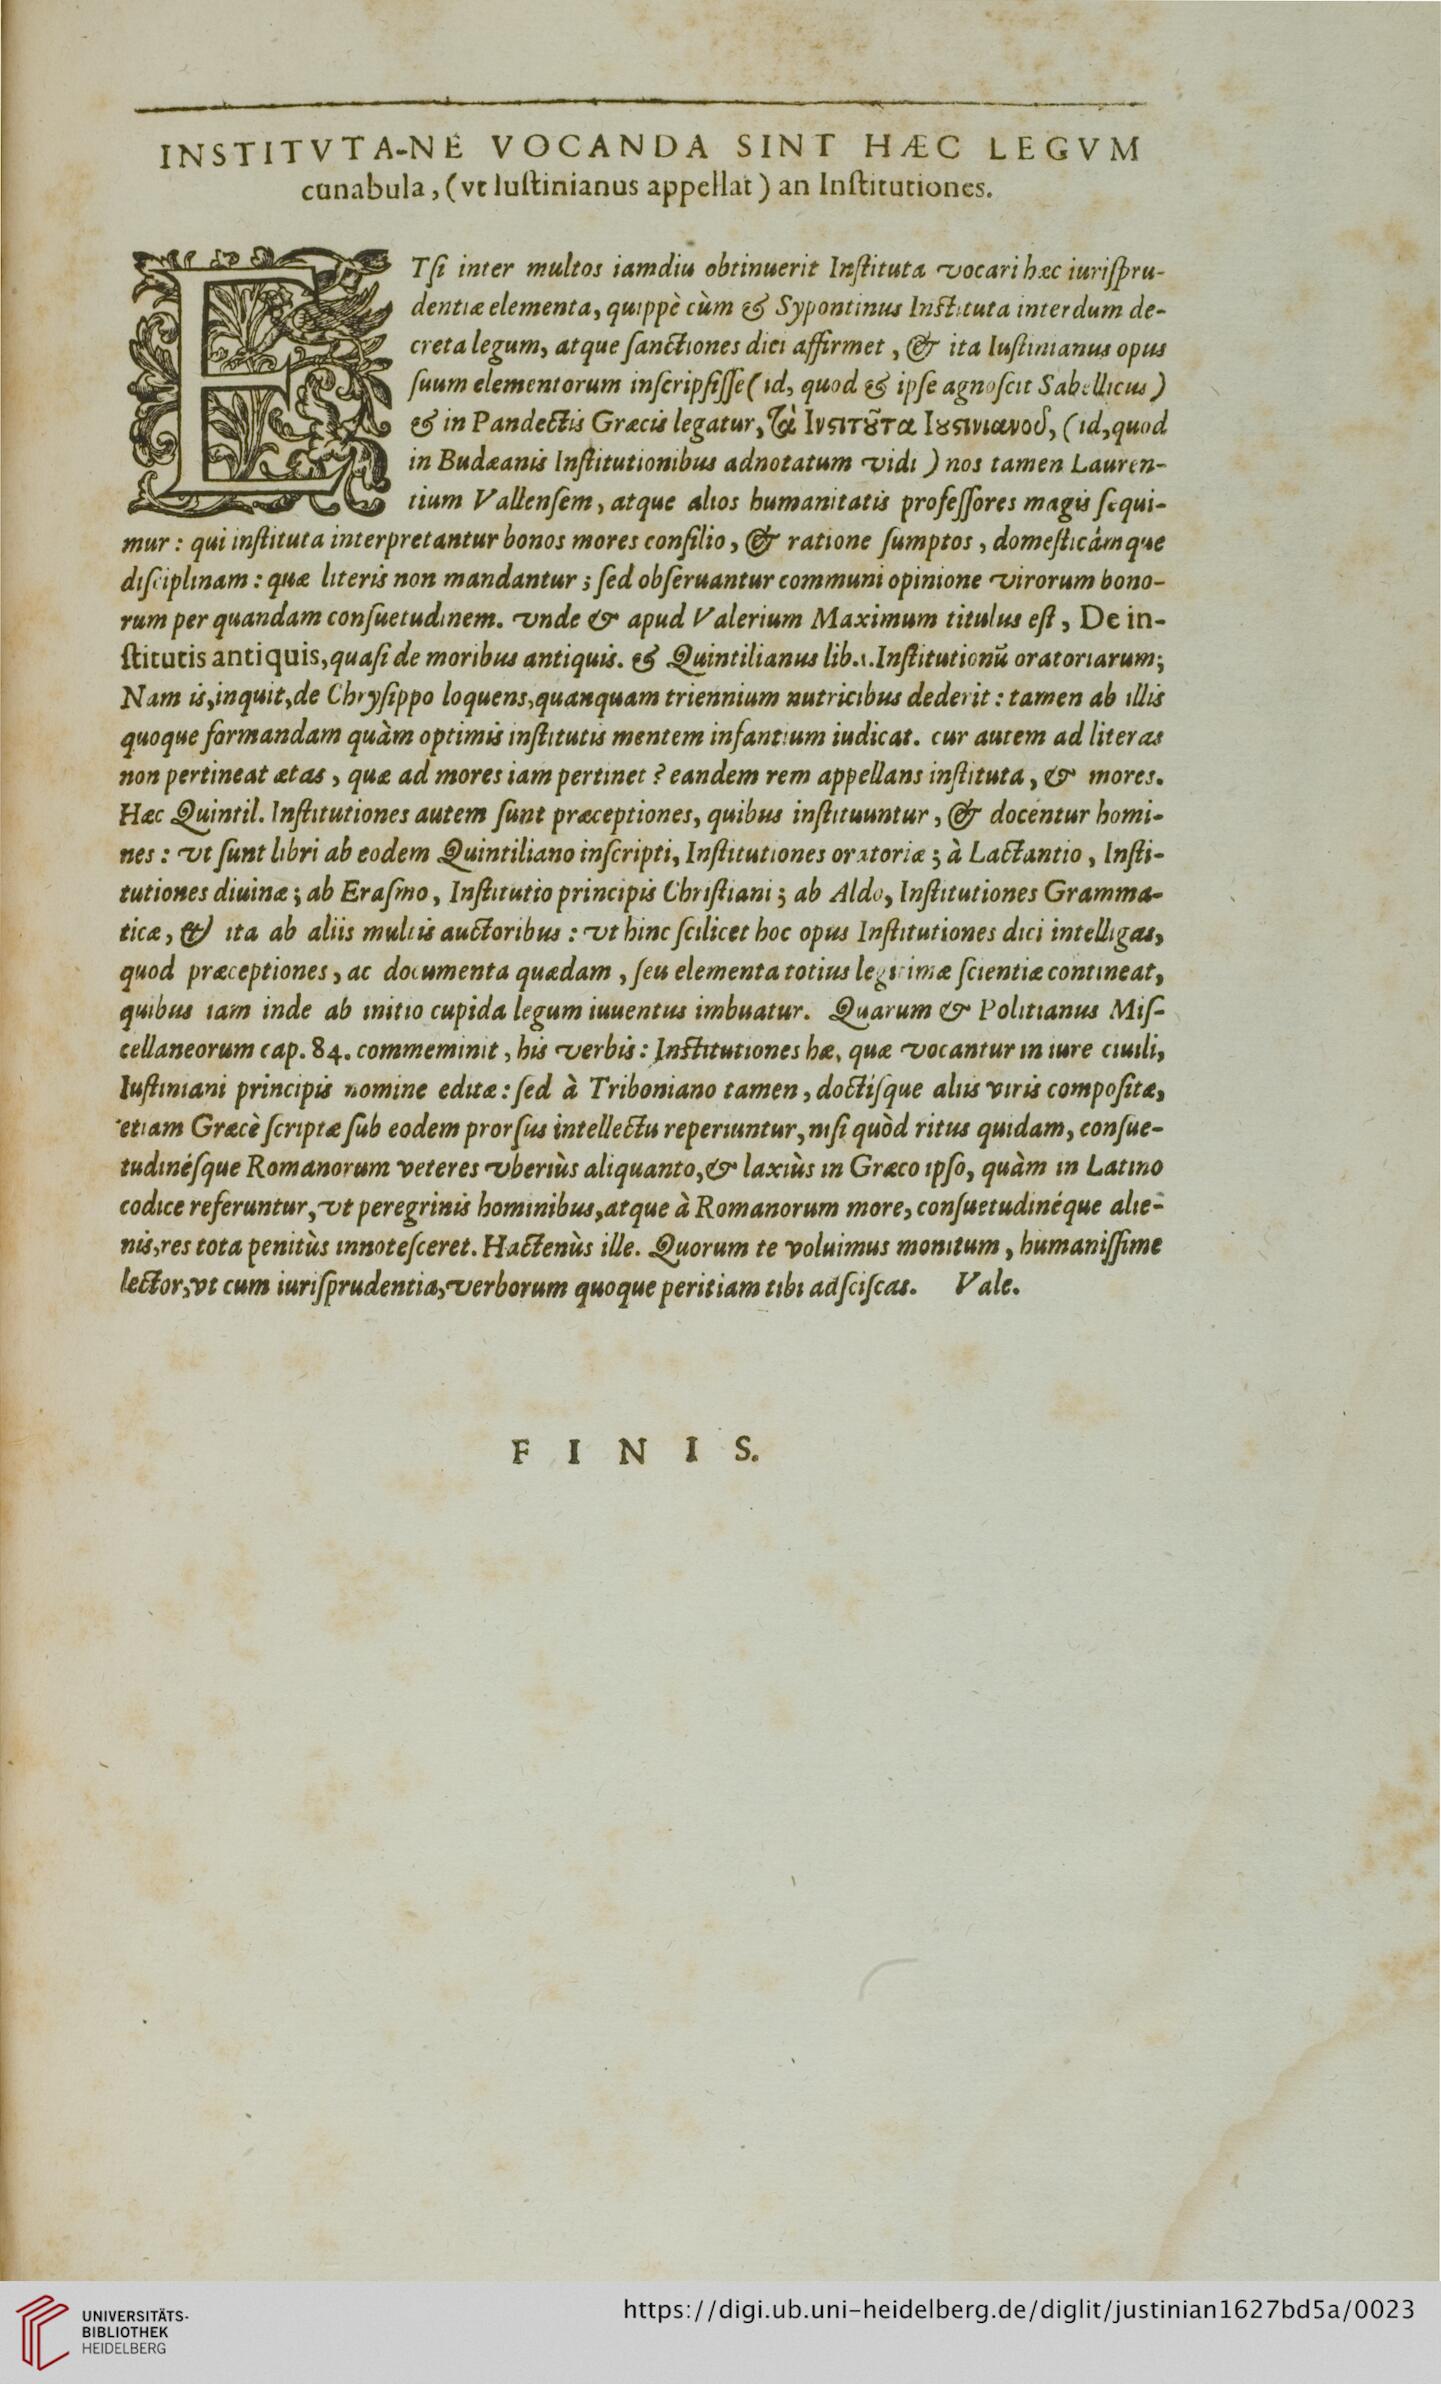 INSTITVTA-NE VOCANDA SINT HÆC LEGVM
cunabula, (vt Iuſtinianus appellat) an Inſtitutiones.
ETſi inter multos iamdiu obtinuerit Inſtituta vocari hæc iuriſpru-
dentiæ elementa, quippè cùm & Sypontinus Inſtituta interdum de-
creta legum, atque ſanctiones dici affirmet, & ita Iuſtinianus opus
ſuum elementorum inſcripſiſſe (id, quod & ipſe agnoſcit Sabellicus)
& in Pandectis Græcis legatur, τὰ Ινϛιτȣ͂τα Ιȣϛινιανοῦ, (id, quod
in Budæanis Inſtitutionibus adnotatum vidi) nos tamen Lauren-
tium Vallenſem, atque alios humanitatis profeſſores magis ſequi-
mur: qui inſtituta interpretantur bonos mores conſilio, & ratione ſumptos, domeſticámque
diſciplinam: quæ literis non mandantur; ſed obſeruantur communi opinione virorum bono-
rum per quandam conſuetudinem. vnde & apud Valerium Maximum titulus eſt, De in-
ſtitutis antiquis, quaſi de moribus antiquis. & Quintilianus lib.1. Inſtitutionū oratoriarum;
Nam is, inquit, de Chryſippo loquens, quanquam triennium nutricibus dederit: tamen ab illis
quoque formandam quàm optimis inſtitutis mentem infantium iudicat. cur autem ad literas
non pertineat ætas, quæ ad mores iam pertinet? eandem rem appellans inſtituta, & mores.
Hæc Quintil. Inſtitutiones autem ſunt præceptiones, quibus inſtituuntur, & docentur homi-
nes: vt ſunt libri ab eodem Quintiliano inſcripti, Inſtitutiones oratoriæ; à Lactantio, Inſti-
tutiones diuinæ; ab Eraſmo, Inſtitutio principis Chriſtiani; ab Aldo, Inſtitutiones Gramma-
ticæ, & ita ab aliis multis auctoribus: vt hinc ſcilicet hoc opus Inſtitutiones dici intelligas,
quod præceptiones, ac documenta quædam, ſeu elementa totius legitimæ ſcientiæ contineat,
quibus iam inde ab initio cupida legum iuuentus imbuatur. Quarum & Politianus Miſ-
cellaneorum cap. 84. commeminit, his verbis: Inſtitutiones hæ, quæ vocantur in iure ciuili,
Iuſtiniani principis nomine editæ: ſed à Triboniano tamen, doctiſque aliis viris compoſitæ,
etiam Græcè ſcriptæ ſub eodem prorſus intellectu reperiuntur, niſi quòd ritus quidam, conſue-
tudinéſque Romanorum veteres vberiùs aliquanto, & laxiùs in Græco ipſo, quàm in Latino
codice referuntur, vt peregrinis hominibus, atque à Romanorum more, conſuetudinéque alie-
nis, res tota penitùs innoteſceret. Hactenùs ille. Quorum te voluimus monitum, humaniſſime
lector, vt cum iuriſprudentia, verborum quoque peritiam tibi adſciſcas. Vale.
FINIS.
UNIVERSITÄTS-
BIBLIOTHEK
HEIDELBERG
https://digi.ub.uni-heidelberg.de/diglit/justinian1627bd5a/0023